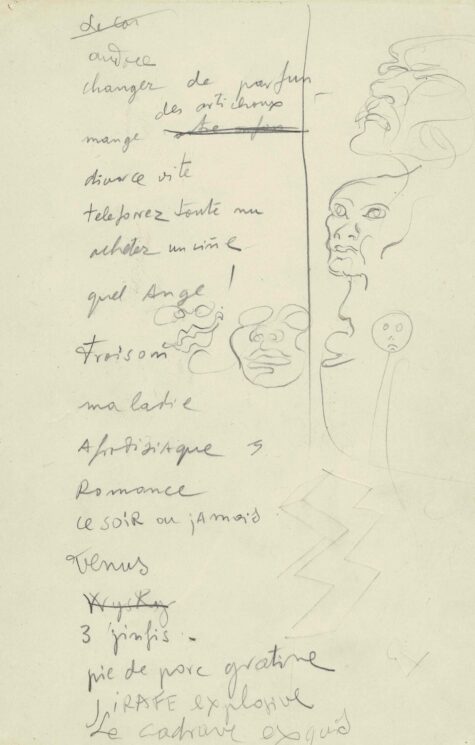 andree
changer de parfun
des artichoux
mange
divorce vite
telefonez toute nu
achetez un
quel Ange !
maladie
Afrodisiaque
Romance
ce soiR ou jAmais
Venus
Wysky
3
pie de porc gratine
JiRAFE explosive
Le cadavre exquis